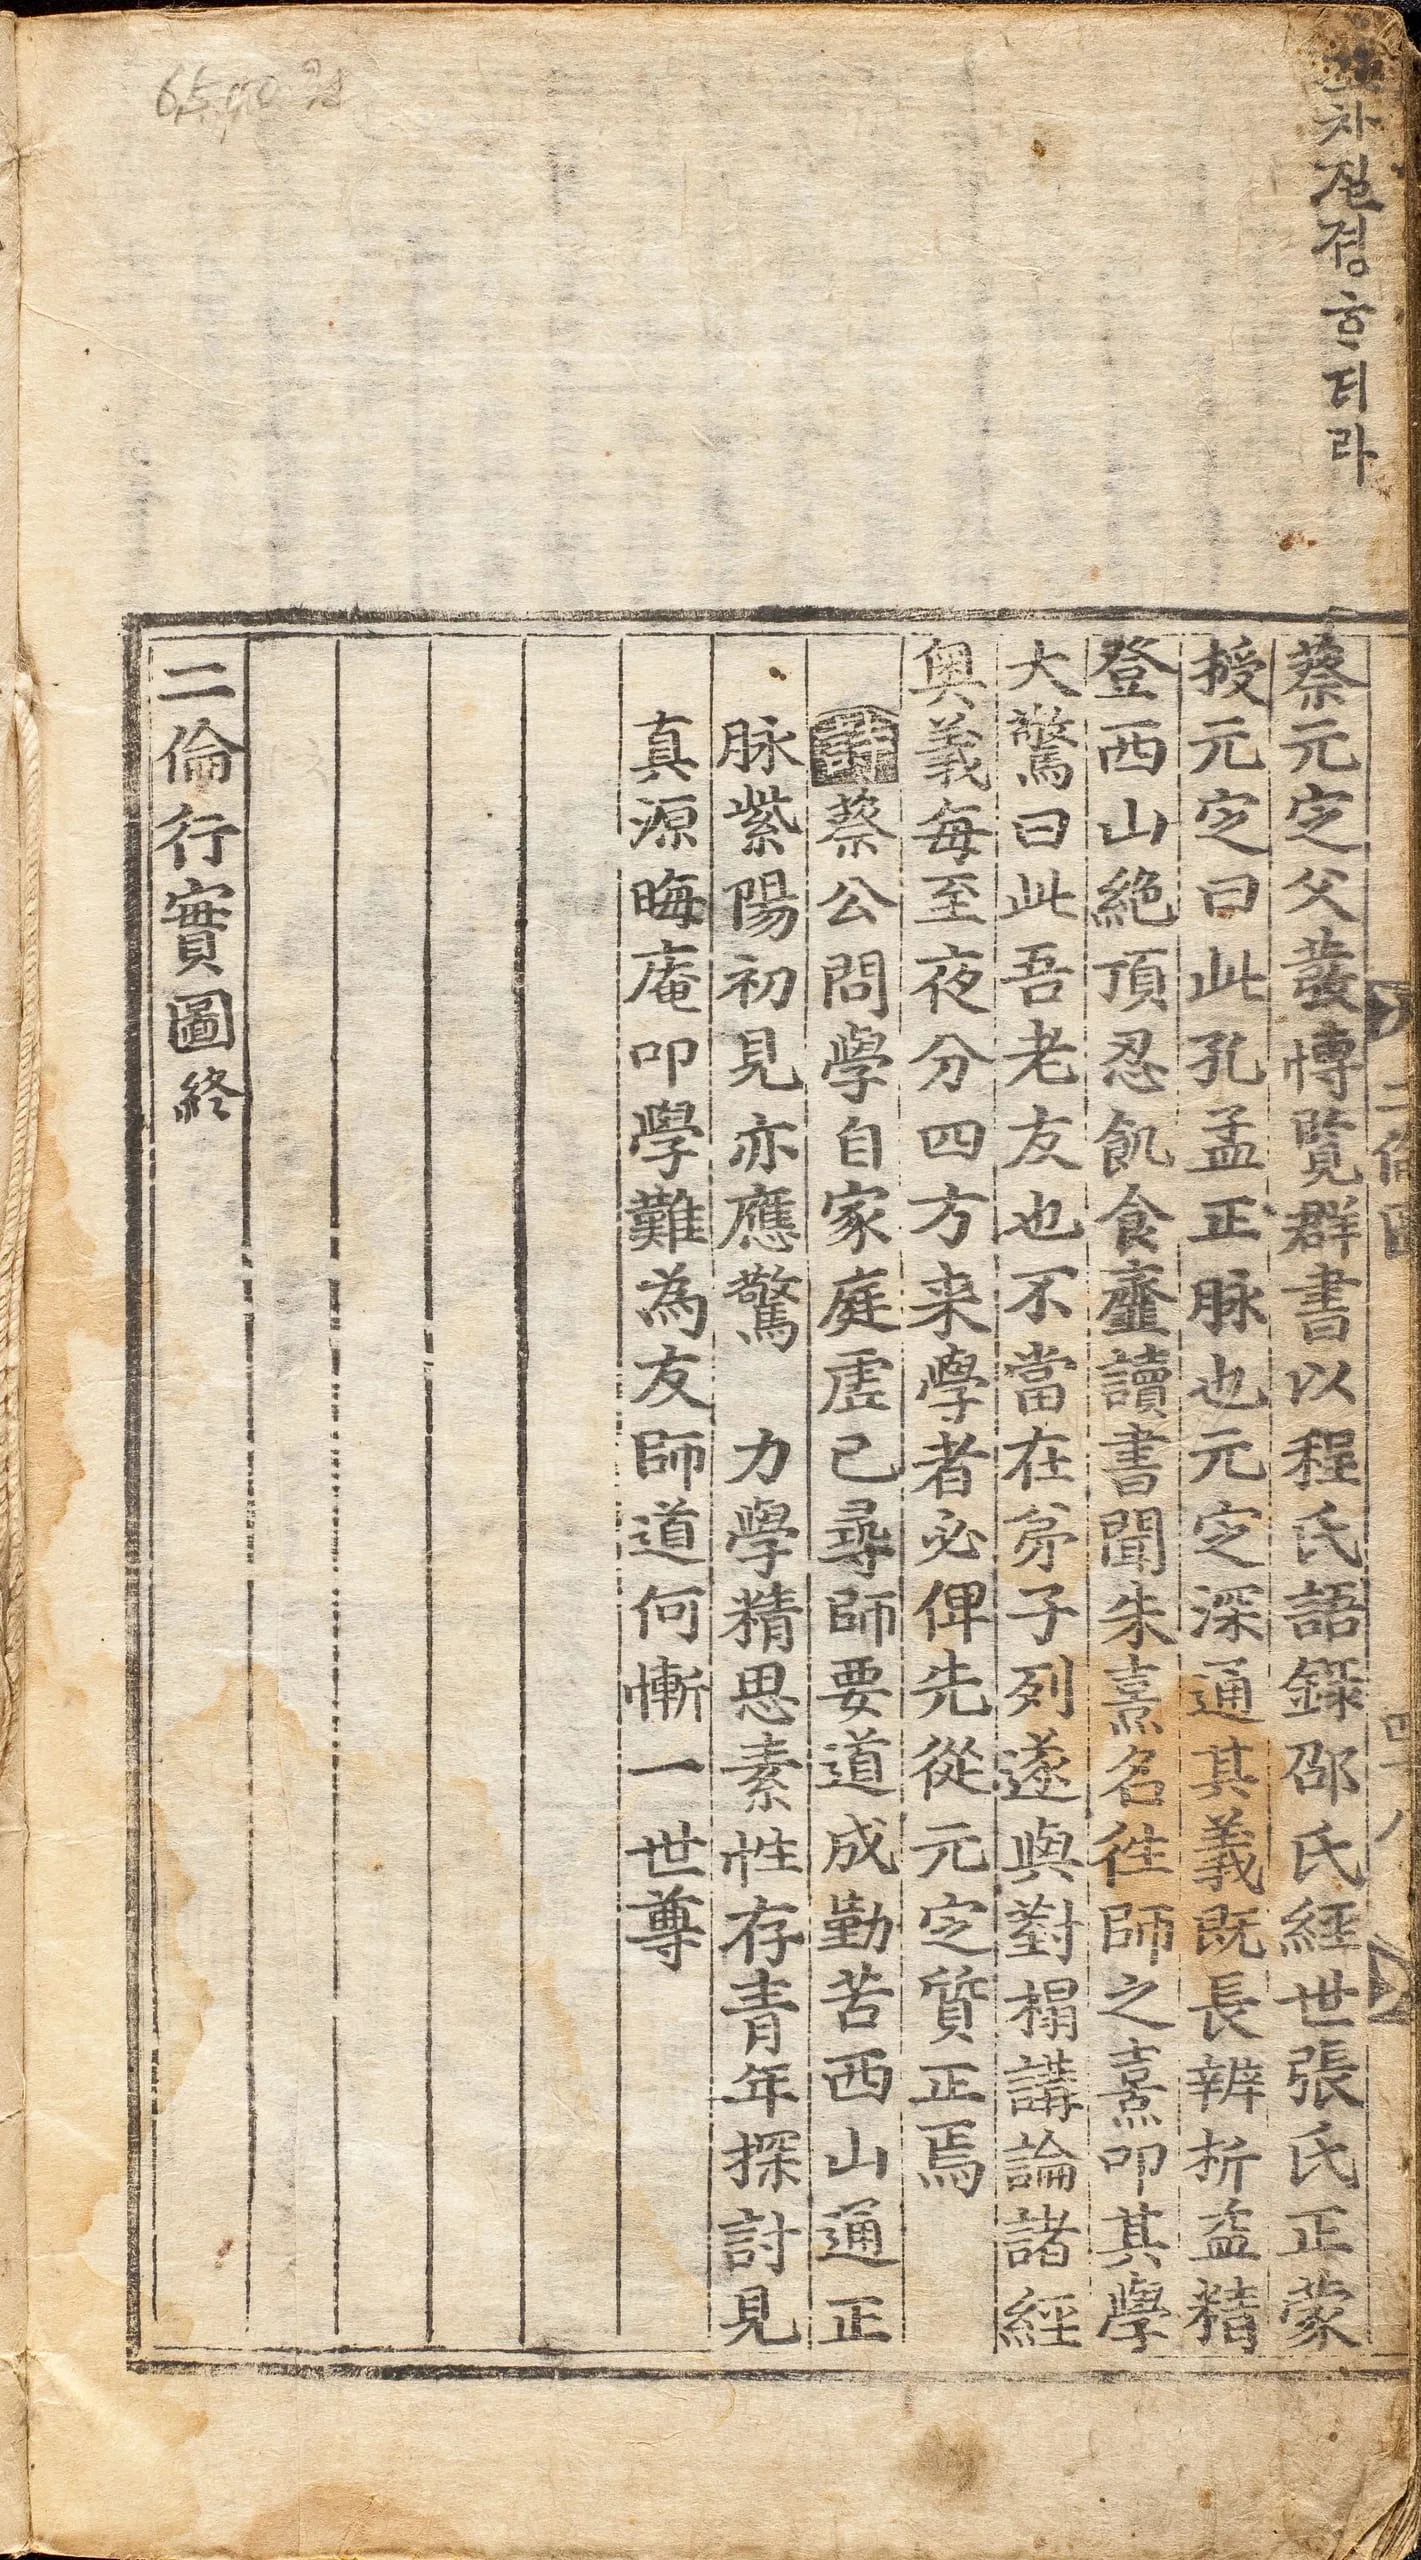 차질졍ᄒᆞ더라
蔡元定父發博覽群書以程氏語錄邵氏經世張氏正蒙
授元定曰此孔孟正脉也元定深通其義既長辨析益精
登西山絶頂忍飢食虀讀書聞朱熹名徃師之熹叩其學
大驚曰此吾老友也不當在弟子列遂與對榻講論諸經
奧義每至夜分四方来學者必俾先從元定質正焉
詩蔡公問學自家庭虛已尋師要道成勤苦西山通正
脉紫陽初見亦應驚 力學精思素性存青年探討見
真源晦庵叩學難為友師道何慚一世尊
二倫行實圖終
二倫圖 四十八